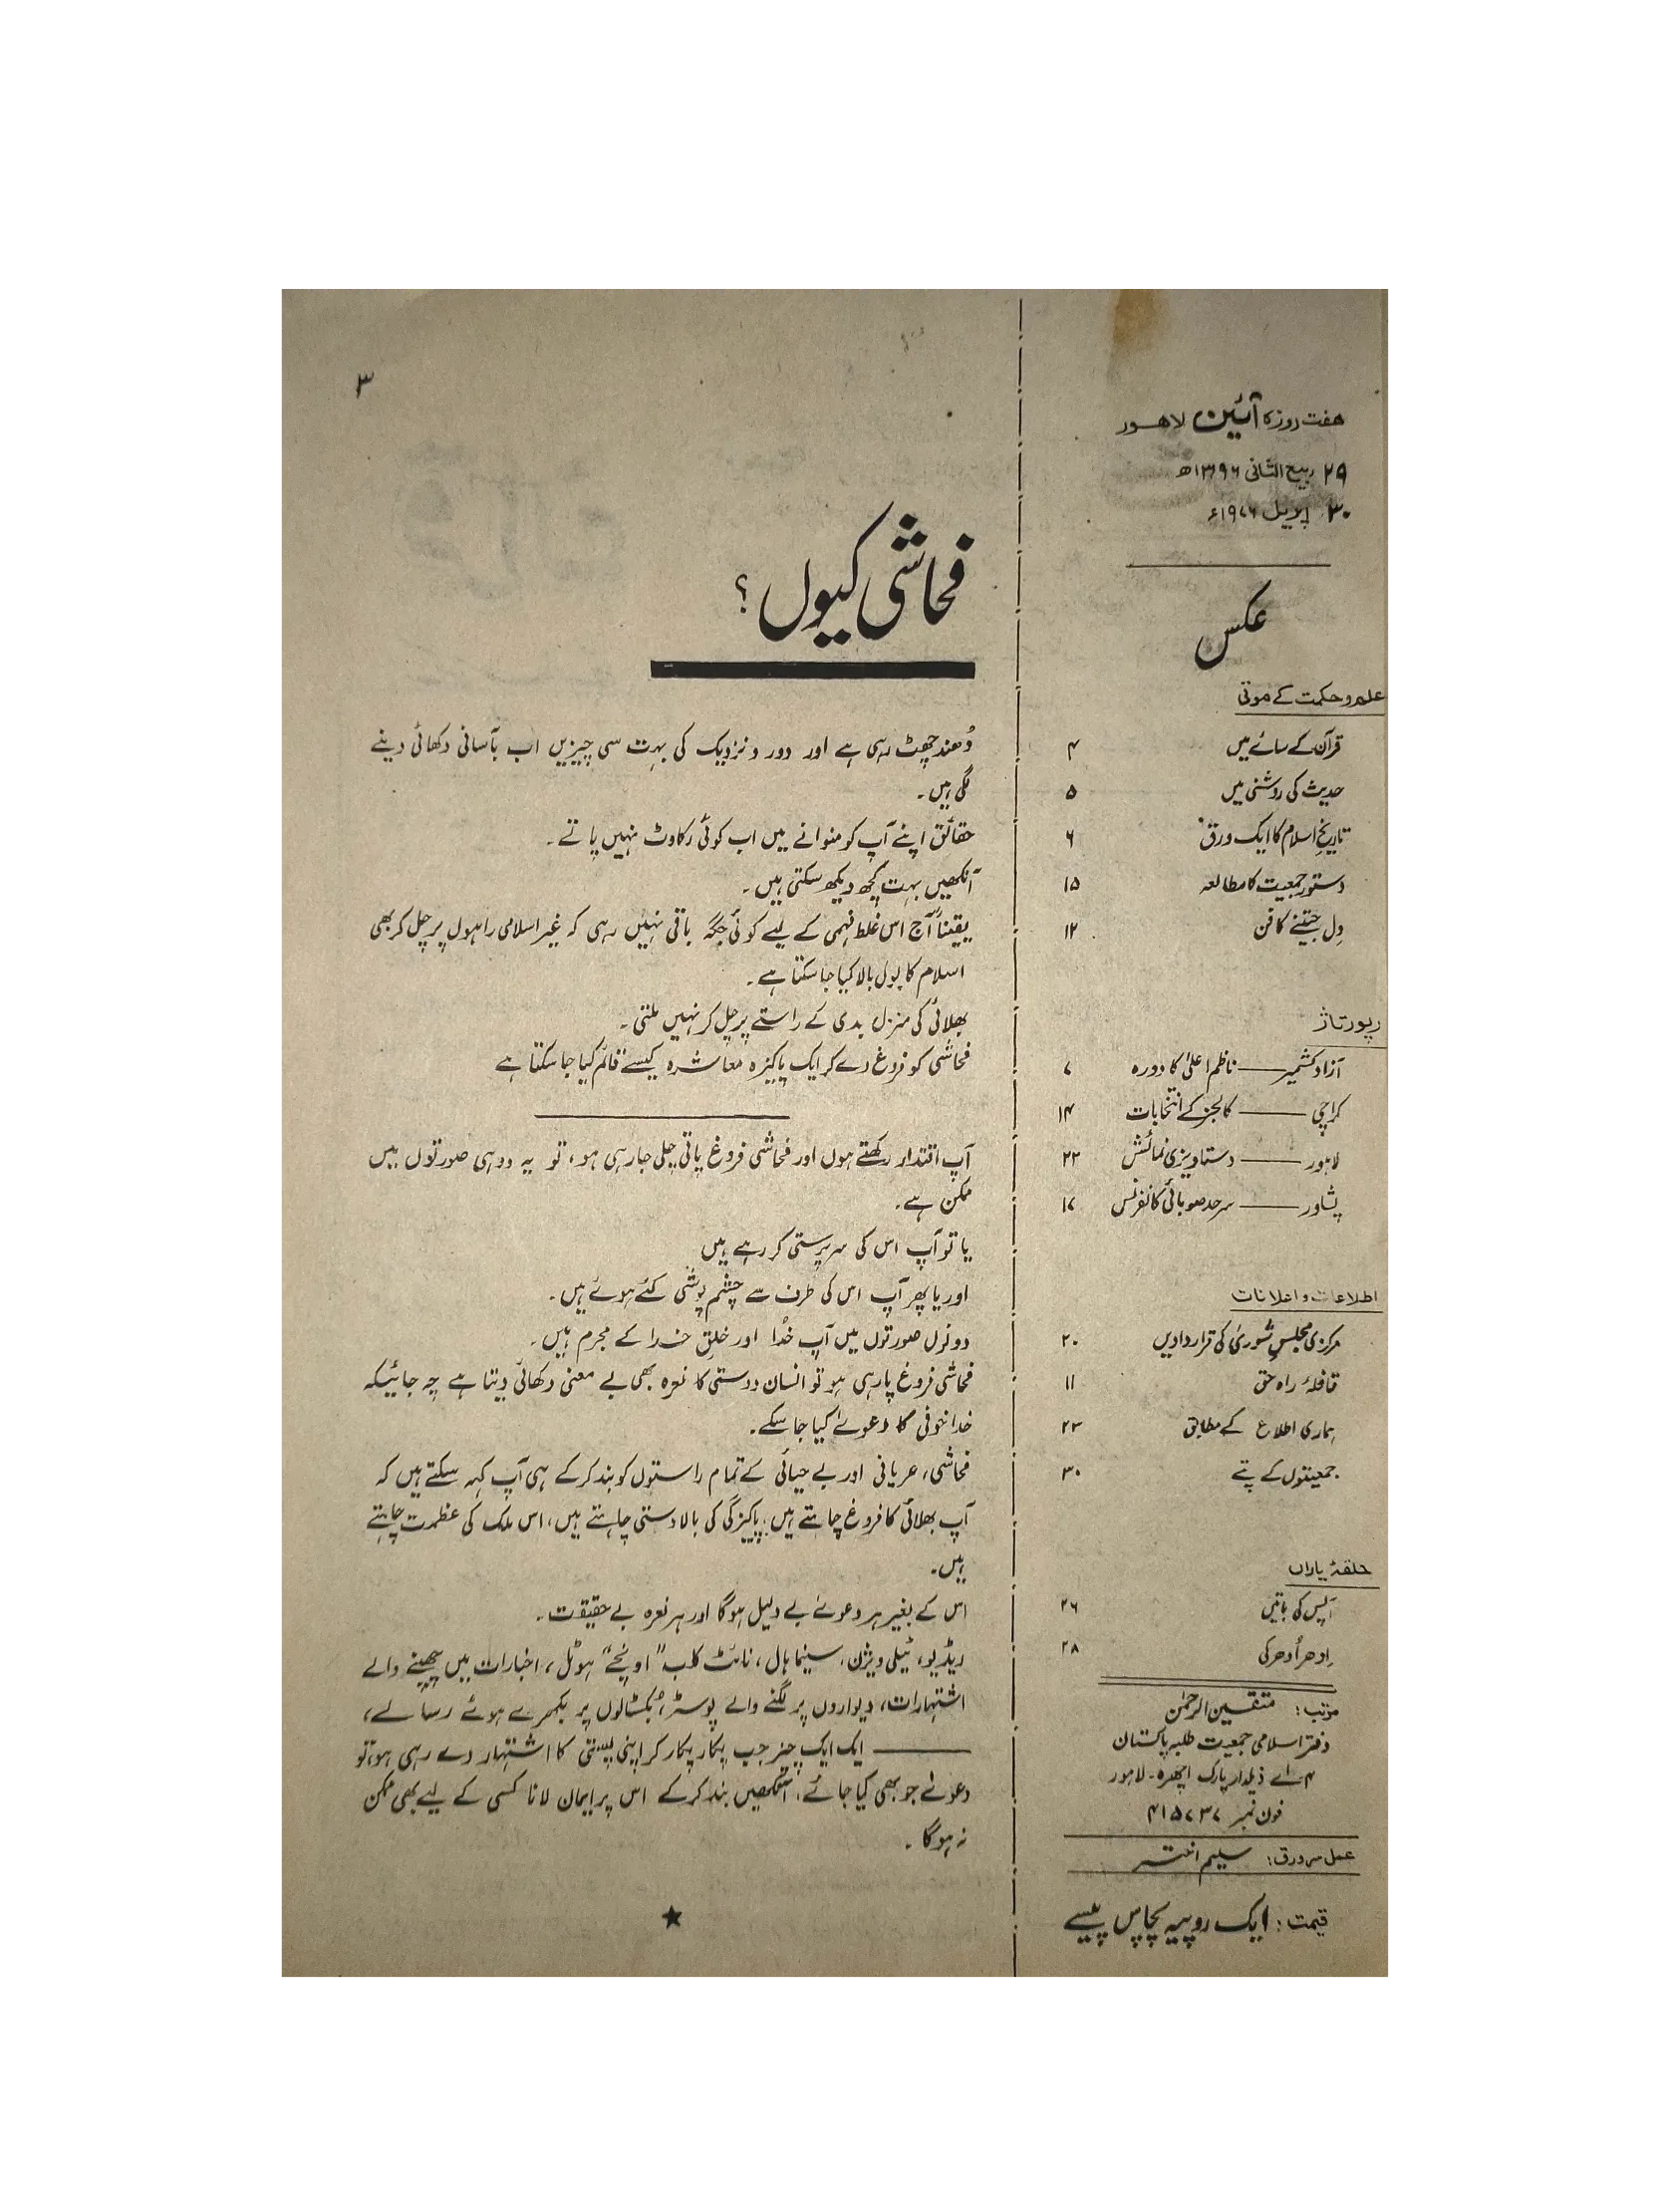 ۳
ہفت روزہ آئین لاہور
۲۹ ربیع الثانی ۱۳۹۶ھ
۳۰ اپریل ۱۹۷۶ء
عکس
علم و حکمت کے موتی
قرآن کے سائے میں ۴
حدیث کی روشنی میں ۵
تاریخ اسلام کا ایک ورق ۶
دستور جمعیت کا مطالعہ ۱۵
دِل جیتنے کا فن ۱۲
رپورتاژ
آزاد کشمیر —— ناظم اعلیٰ کا دورہ ۷
کراچی —— کالجز کے انتخابات ۱۴
لاہور —— دستاویزی نمائش ۲۲
پشاور —— سرحد صوبائی کانفرنس ۱۷
اطلاعات و اعلانات
مرکزی مجلسِ شوریٰ کی قراردادیں ۲۰
قافلۂ راہ حق ۱۱
ہماری اطلاع کے مطابق ۲۳
جمعیتوں کے پتے ۳۰
حلقۂ یاراں
آپس کی باتیں ۲۶
اِدھر اُدھر کی ۲۸
مرتب: متقین الرحمٰن
دفتر اسلامی جمعیت طلبہ پاکستان
۴۔اے ذیلدار پارک اچھرہ۔ لاہور
فون نمبر ۴۱۵۷۳۷
عمل سرورق: سلیم اختر
قیمت: ایک روپیہ پچاس پیسے
فحاشی کیوں؟
دُھند چھٹ رہی ہے اور دور و نزدیک کی بہت سی چیزیں اب بآسانی دکھائی دینے
لگی ہیں۔
حقائق اپنے آپ کو منوانے میں اب کوئی رکاوٹ نہیں پاتے۔
آنکھیں بہت کچھ دیکھ سکتی ہیں۔
یقیناً آج اس غلط فہمی کے لیے کوئی جگہ باقی نہیں رہی کہ غیر اسلامی راہوں پر چل کر بھی
اسلام کا بول بالا کیا جا سکتا ہے۔
بھلائی کی منزل بدی کے راستے پر چل کر نہیں ملتی۔
فحاشی کو فروغ دے کر ایک پاکیزہ معاشرہ کیسے قائم کیا جا سکتا ہے
آپ اقتدار رکھتے ہوں اور فحاشی فروغ پاتی چلی جا رہی ہو، تو یہ دو ہی صورتوں میں
ممکن ہے۔
یا تو آپ اس کی سرپرستی کر رہے ہیں
اور یا پھر آپ اس کی طرف سے چشم پوشی کئے ہوئے ہیں۔
دونوں صورتوں میں آپ خُدا اور خلقِ خدا کے مجرم ہیں۔
فحاشی فروغ پا رہی ہو تو انسان دوستی کا نعرہ بھی بے معنی دکھائی دیتا ہے چہ جائیکہ
خدا خوفی کا دعوےٰ کیا جا سکے۔
فحاشی، عریانی اور بے حیائی کے تمام راستوں کو بند کر کے ہی آپ کہہ سکتے ہیں کہ
آپ بھلائی کا فروغ چاہتے ہیں، پاکیزگی کی بالادستی چاہتے ہیں، اس ملک کی عظمت چاہتے
ہیں۔
اس کے بغیر ہر دعوےٰ بے دلیل ہوگا اور ہر نعرہ بے حقیقت۔
ریڈیو، ٹیلی ویژن، سینما ہال، نائٹ کلب "اونچے" ہوٹل، اخبارات میں چھپنے والے
اشتہارات، دیواروں پر لگنے والے پوسٹر، بُکسٹالوں پر بکھرے ہوئے رسالے،
—— ایک ایک چیز جب پکار پکار کر اپنی پستی کا اشتہار دے رہی ہو، تو
دعوےٰ جو بھی کیا جائے، آنکھیں بند کر کے اس پر ایمان لانا کسی کے لیے بھی ممکن
نہ ہوگا۔